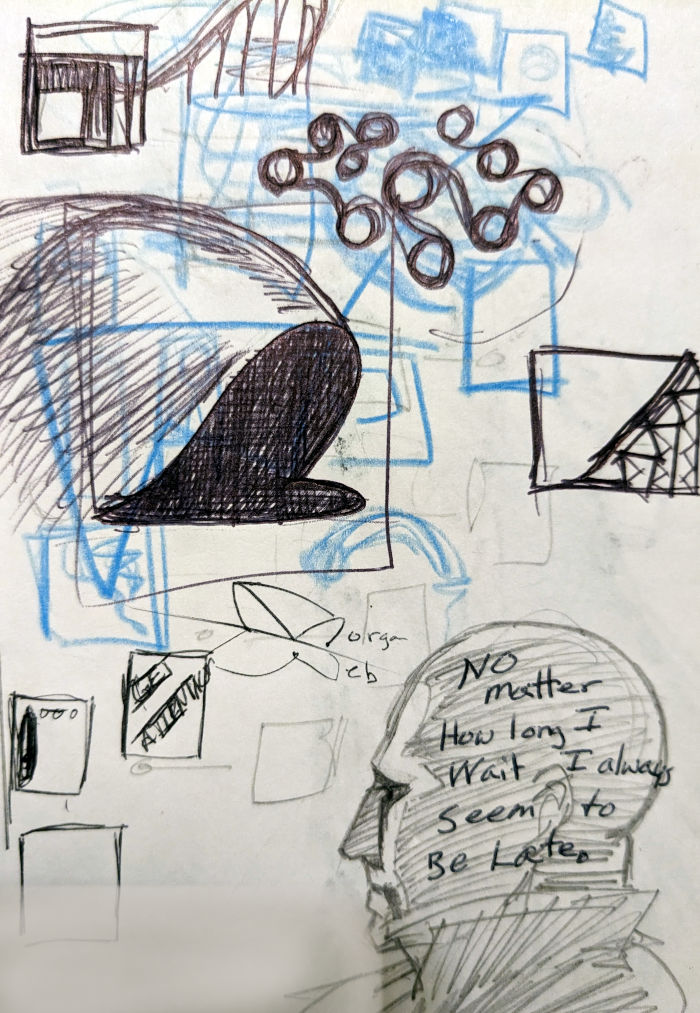 organ
eb
GE
ATTENTION
NO
matter
How long I
Wait I always
seem to
Be Late.